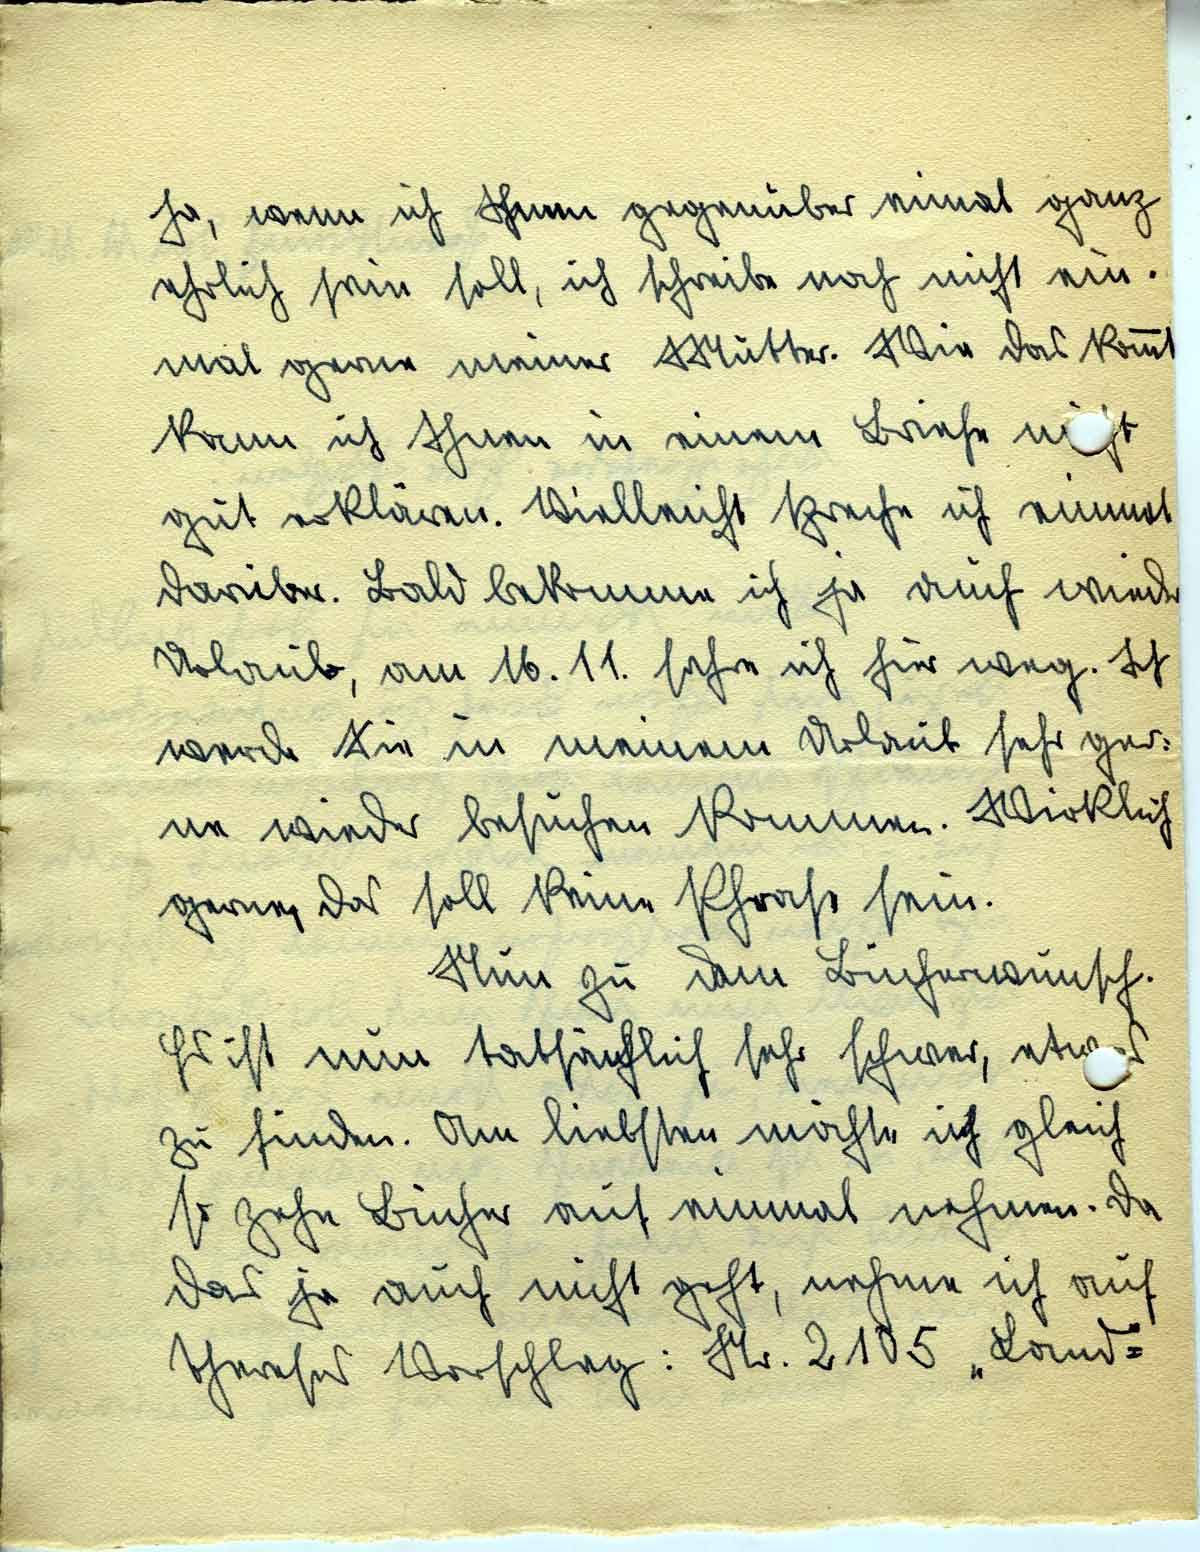 Ja, wenn ich Ihnen gegenüber einmal ganz
ehrlich sein soll, ich schreibe noch nicht ein-
mal gerne meiner Mutter. Wie das kom̅t
kann ich Ihnen in einem Briefe nicht
gut erklären. Vielleicht spreche ich einmal
darüber. Bald bekomme ich ja auch wieder
Urlaub, am 16. 11. fahre ich hier weg. Ich
werde Sie in meinem Urlaub sehr ger-
ne wieder besuchen kommen. Wirklich
gerne, das soll keine Phrase sein.
Nun zu dem Bücherwunsch.
Es ist nun tatsächlich sehr schwer, etwas
zu finden. Am liebsten möchte ich gleich
so zehn Bücher auf einmal nehmen. Da
das ja auch nicht geht, nehme ich auf
Vorschlag: Nr. 2105 „Land=